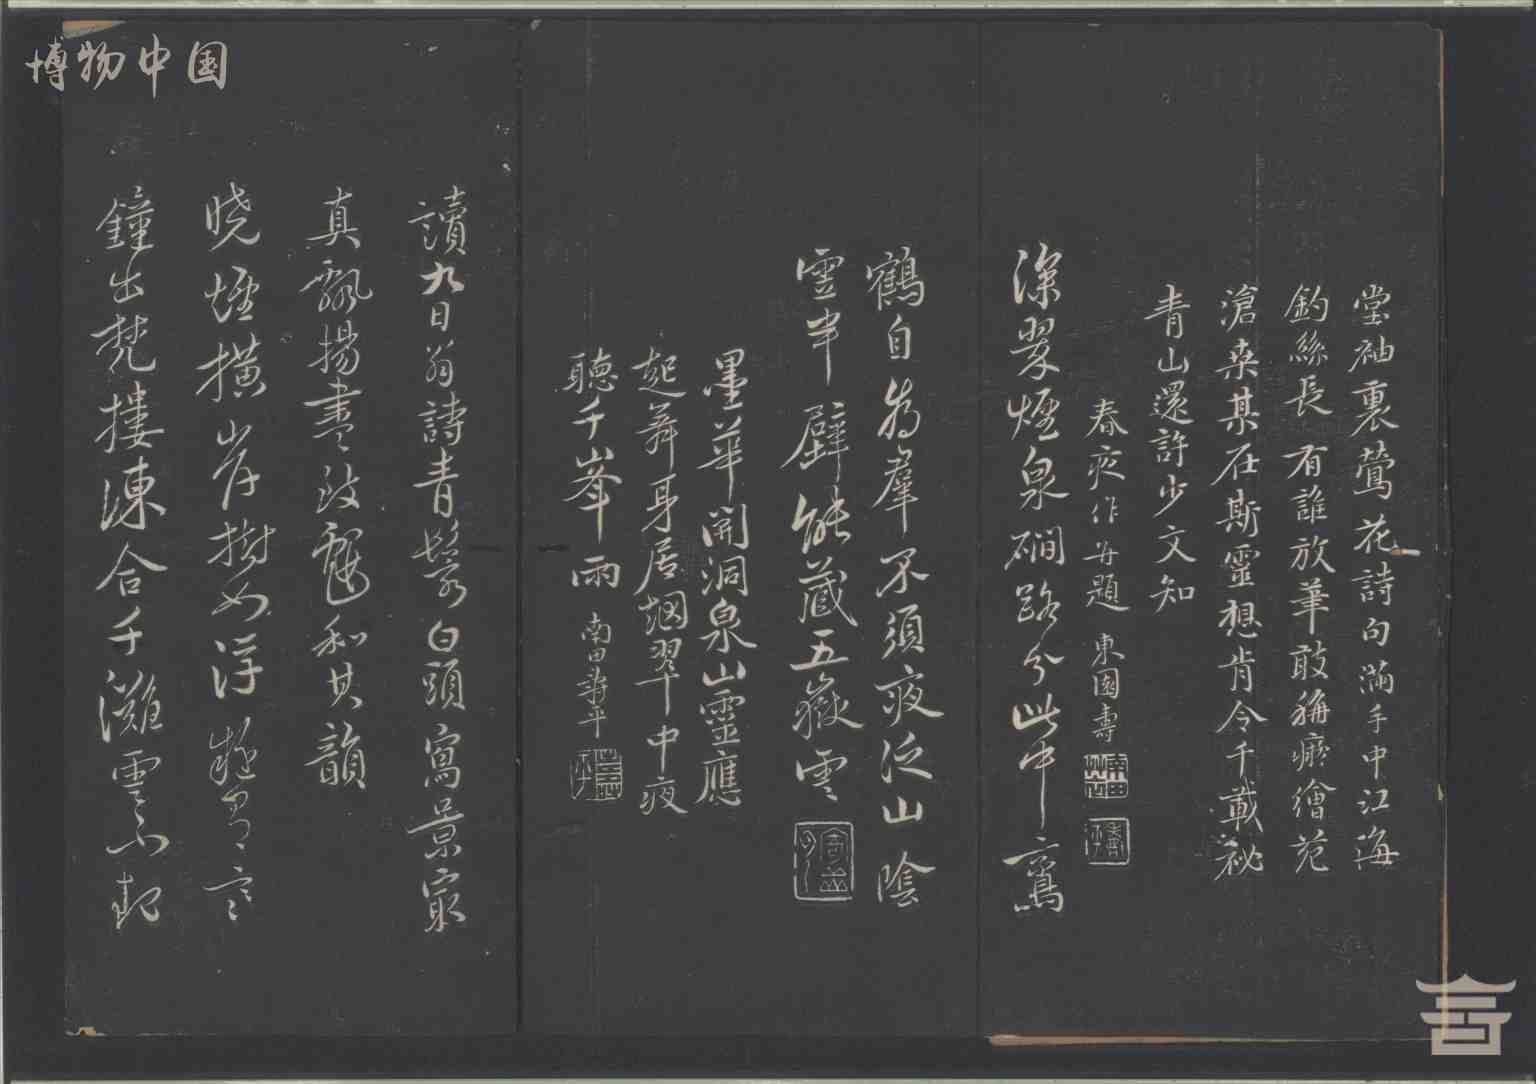 博物中国
堂袖裏鶯花詩句滿手中江海
釣絲長有誰放筆敢稱癡繪苑
滄桑某在斯靈想肯令千載祕
青山還許少文知
春夜作并題 東園壽
深翠煙泉磵路分此中鸞
鶴自為羣不須夜泛山陰
雪半壁能藏五嶽雲
墨華開洞泉山靈應
起舞身居烟翠中夜
聽千峯雨 南田壽平
讀九日翁詩青鬢白頭寫景最
真飄揚盡致輒和其韻
曉煙橫岸樹如浮
鐘出梵樓凍合千灘雲不起